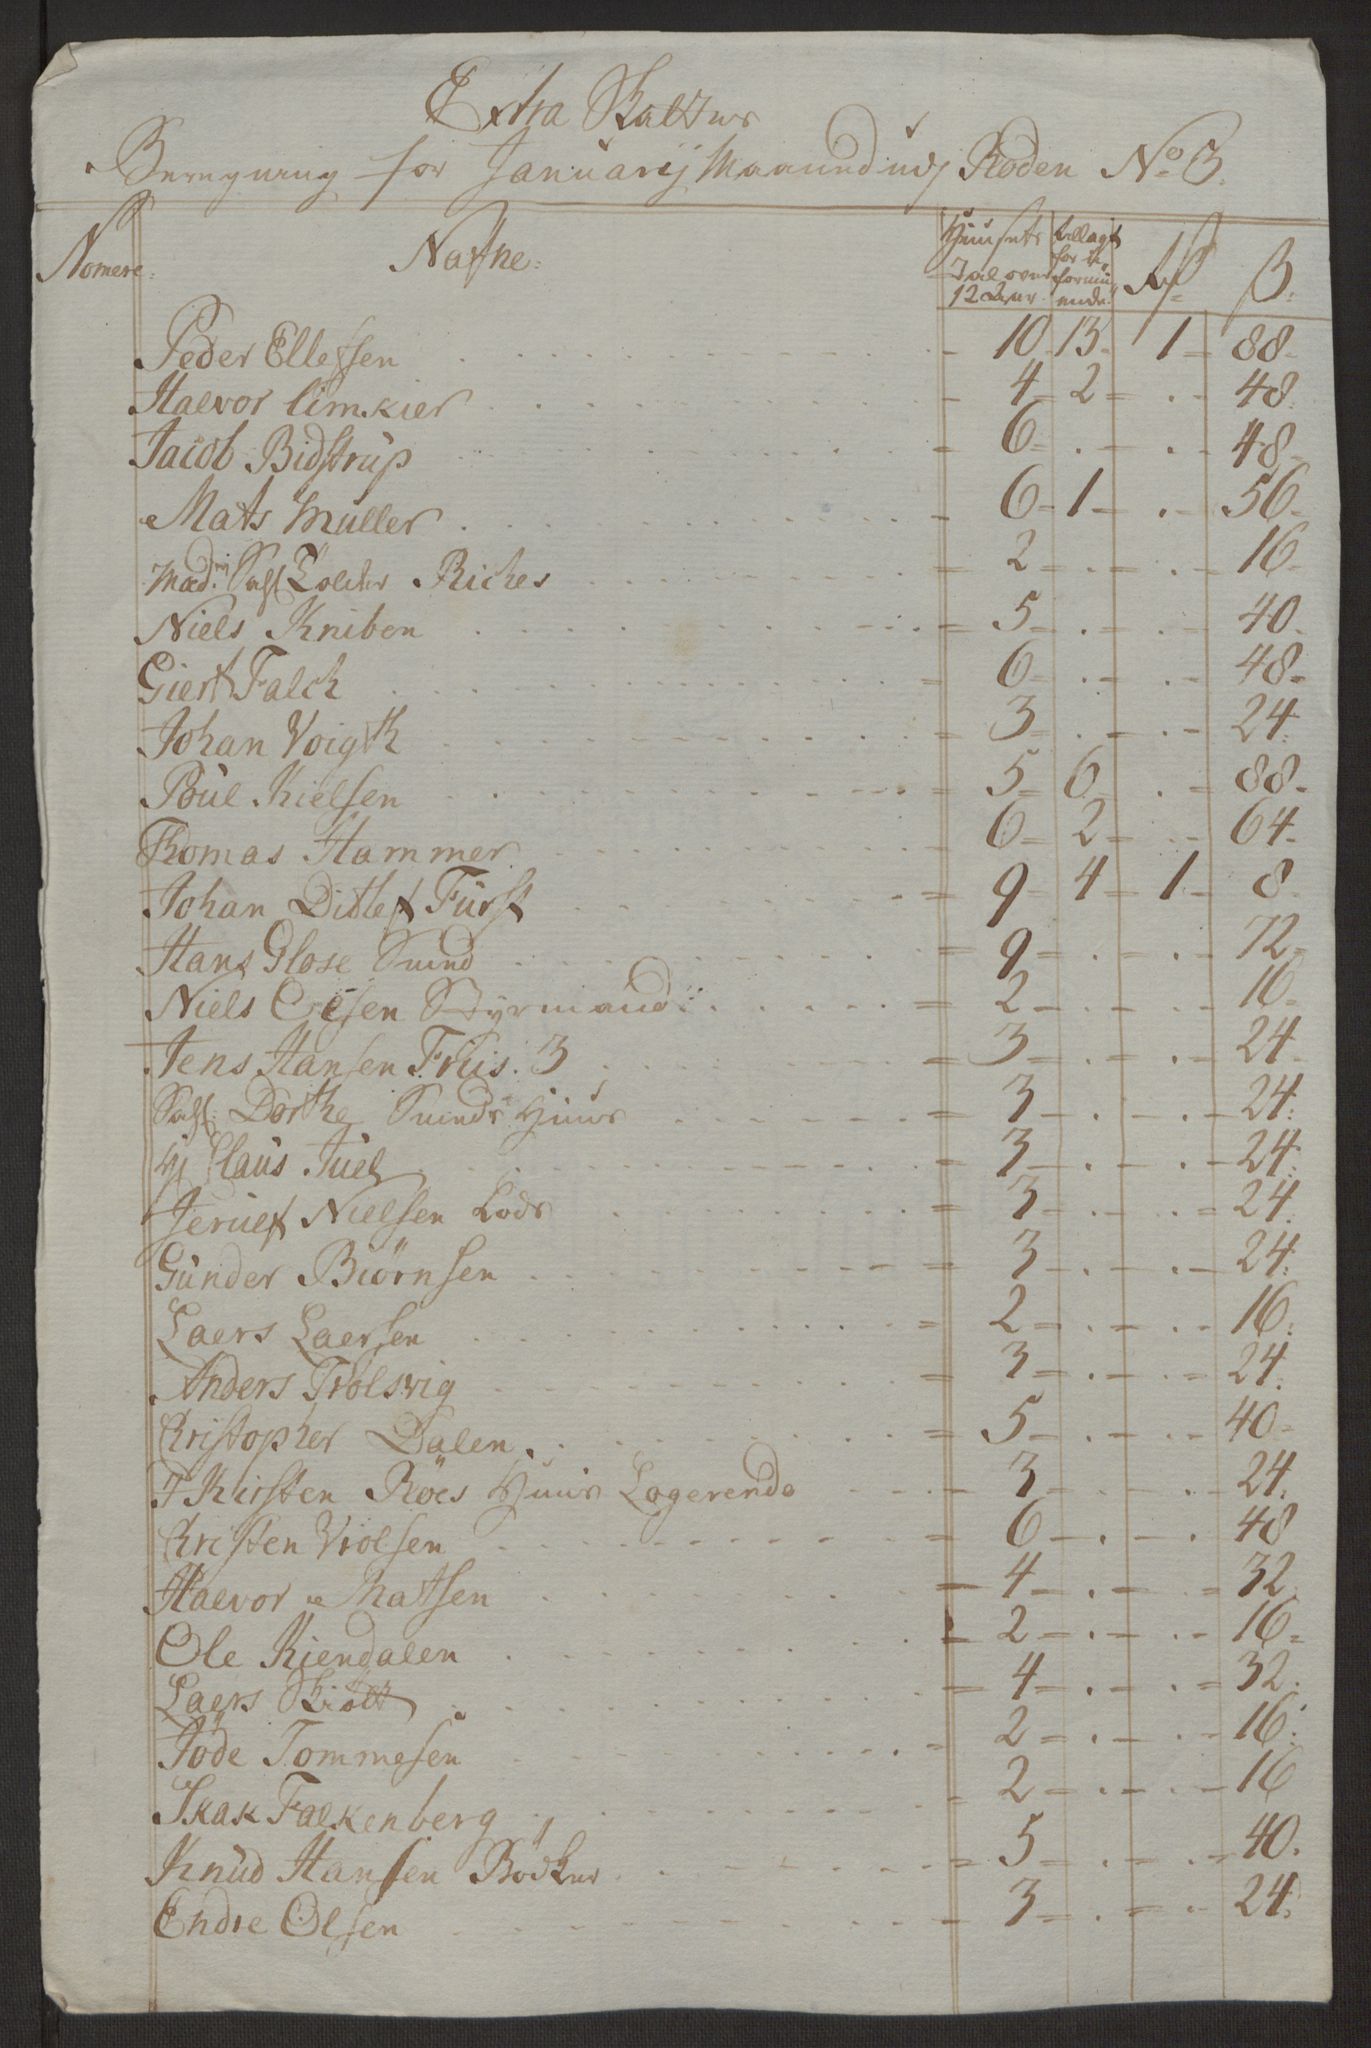 Extra Skattens
Beregning for Januarij Maaned udj Roden No 3.
Nomere: Nafne: Huusets Tal over 12 Aar. tillagt for de formuende. Rd ß:
Peder Ellefsen 10 13 1 88
Halvor Limkier 4 2 48
Jacob Bidstrup 6 48
Mats Müller 6 1 56
Mad. Sahl Riches 2 16
Niels Kniben 5 40
Giert Falck 6 48
Johan Voigth 3 24
Poul Nielsen 5 6 88
Thomas Hammer 6 2 64
Johan Ditlef Fürst 9 4 1 8
Hans Glose Smed 9 72
Niels Olsen Styrmand 2 16
Jens Hansen Friis. 3 3 24
Sahl: Dorthe Smeds Huus 3 24
Hr Claus Juel 3 24
Jeruelf Nielsen Lods 3 24
Gunder Biörnsen 3 24
Laers Laersen 2 16
Anders Trolsvig 3 24
Cristopher Dalen 5 40
I Kirsten Röes Huus Logerende 3 24
Cristen Vrolsen 6 48
Halvor Matsen 4 32
Ole Kiendalen 2 16
Laers Skiött 4 32
Jöde Tommesen 2 16
Isak Falkenberg 2 16
Knud Hansen Bödker 5 40
Endre Olsen 3 24